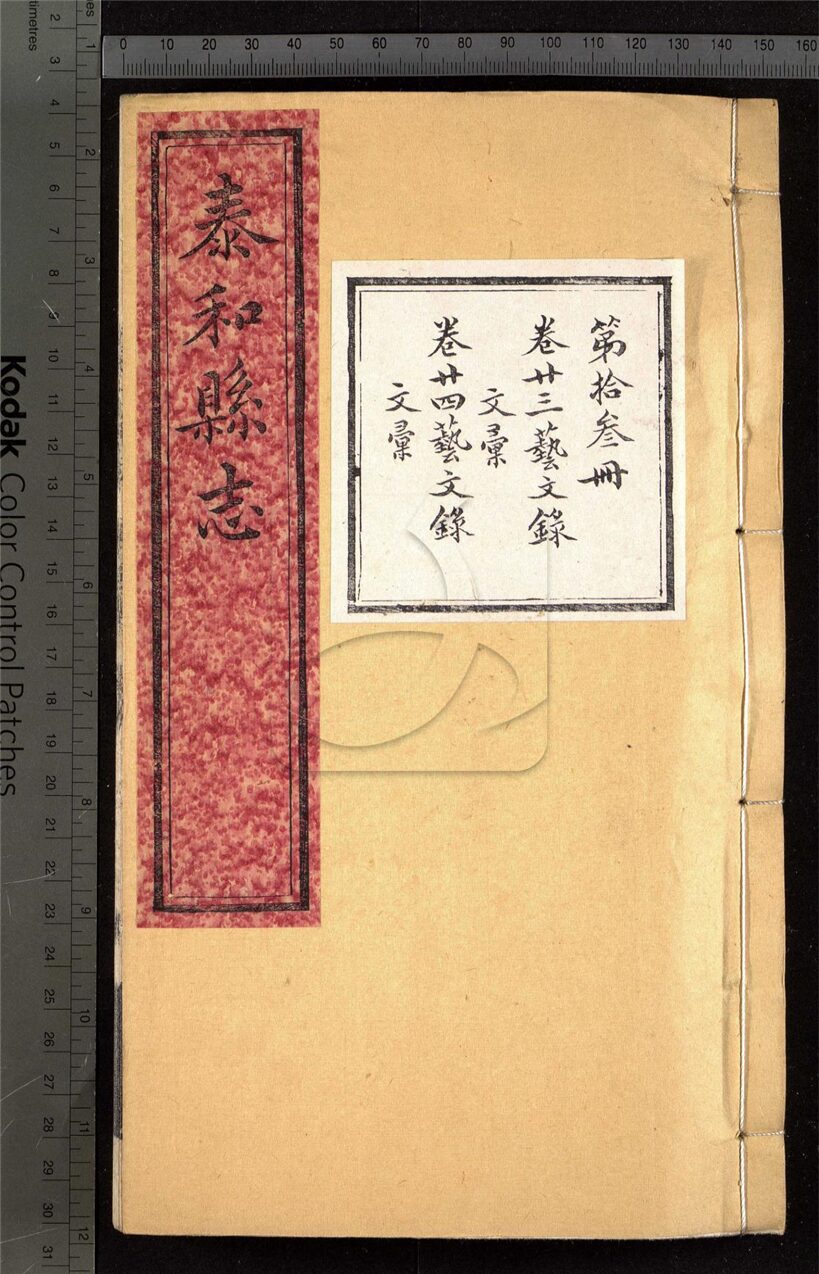 泰和縣志
第拾叁冊
卷廿三藝文錄
文彙
卷廿四藝文錄
文彙
0 10 20 30 40 50 60 70 80 90 100 110 120 130 140 150 160
Kodak Color Control Patches
2 3 4 5 6 7 8 9 10 11 12 13 14 15 16 17 18 19 20 21 22 23 24 25 26 27 28 29 30 31
1 2 3 4 5 6 7 8 9 10 11 12